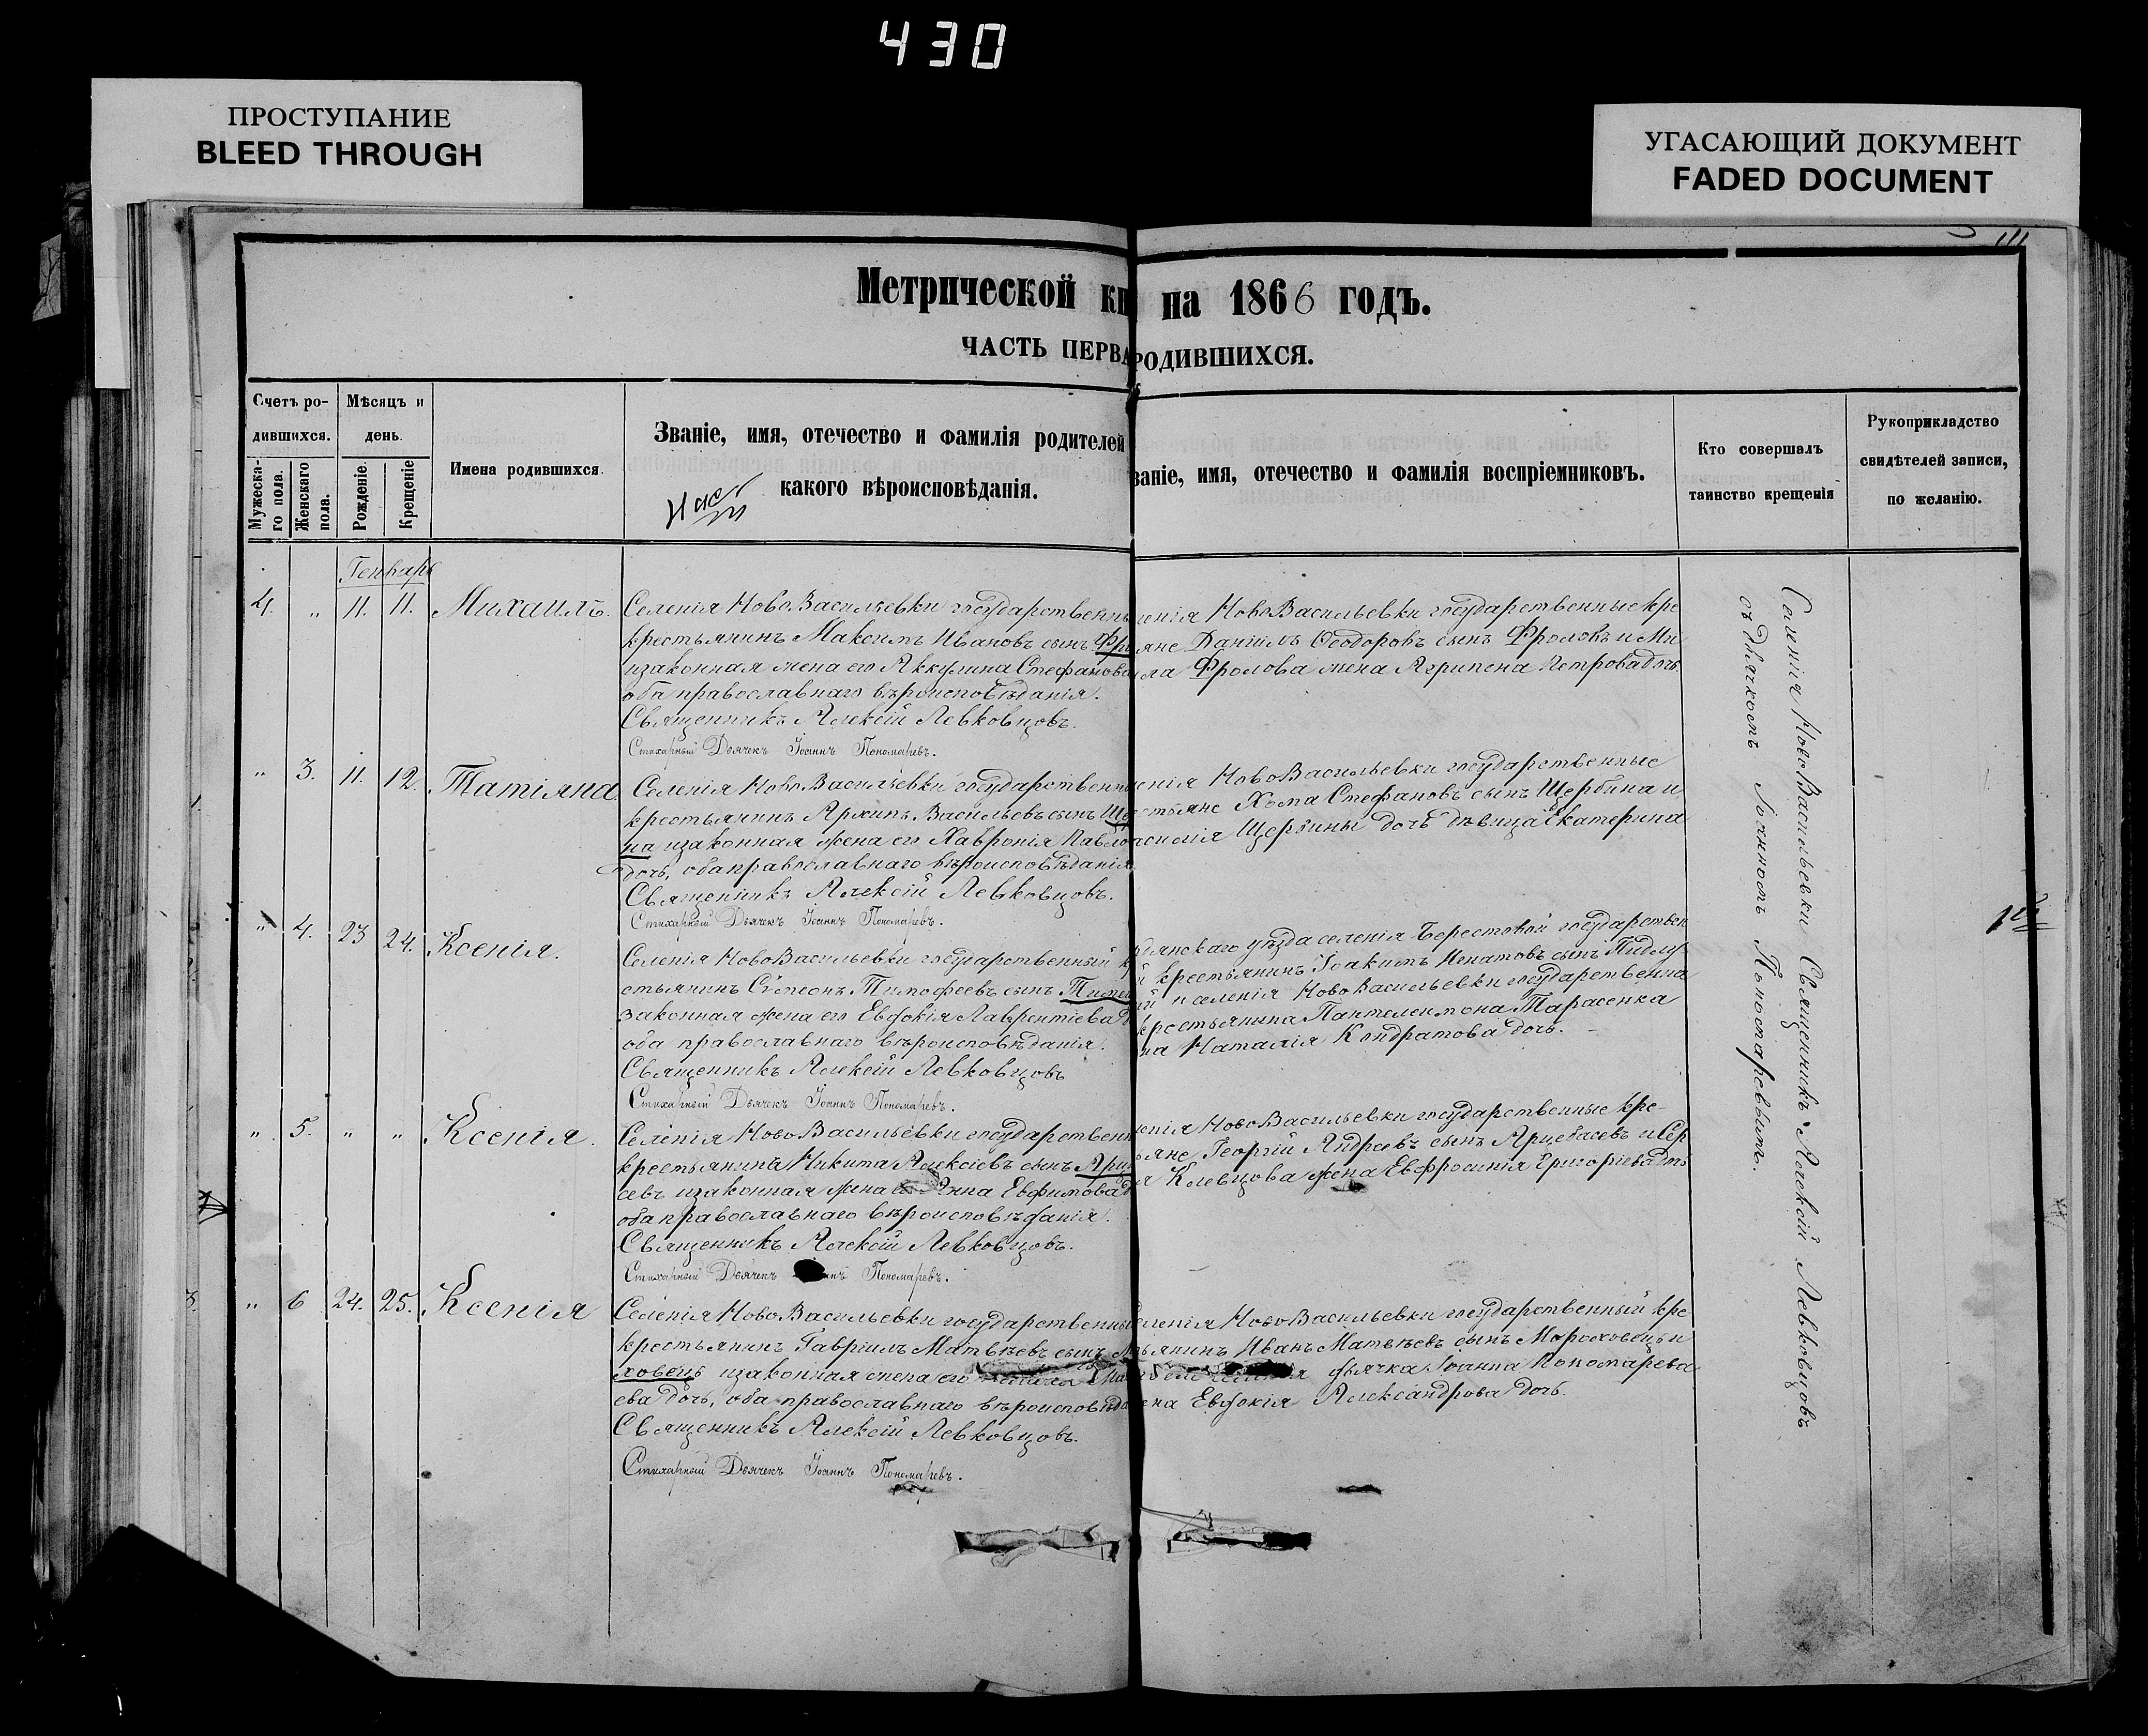 430
ПРОСТУПАНИЕ
BLEED THROUGH
УГАСАЮЩИЙ ДОКУМЕНТ
FADED DOCUMENT
Метрической кн на 1866 годъ.
ЧАСТЬ ПЕРВА РОДИВШИХСЯ.
Счетъ ро-
дившихся.
Мужеска-
го пола.
Женскаго
пола.
Мѣсяцъ и
день.
Рожденіе.
Крещеніе
Имена родившихся.
Званіе, имя, отечество и фамилія родителей
какого вѣроисповѣданія.
ваніе, имя, отечество и фамилія воспріемниковъ.
Кто совершалъ
таинство крещенія
Рукоприкладство
свидѣтелей записи,
по желанію.
Генварь
4. „ 11. 11. Михаилъ.
Селенія НовоВасильевки государственны
крестьянинъ Максимъ Ивановъ сынъ Фро
изаконная жена его Аккулина Стефанова
оба православнаго вѣроисповѣданія.
Священникъ Алексій Левковцовъ.
Стихарный Дьячекъ Іоаннъ Пономаревъ.
ленія НовоВасильевки государственные кре
яне Даніилъ Ѳеодоровъ сынъ Фроловъ и Ми
ла Фролова жена Агрипена Петрова дочь
„ 3. 11. 12. Татіяна.
Селенія НовоВасильевки государственны
крестьянинъ Архипъ Васильевъ сынъ Ще
на изаконная жена его Хавронія Павло
дочь, оба православнаго вѣроисповѣданія
Священникъ Алексій Левковцовъ.
Стихарный Дьячекъ Іоаннъ Пономаревъ.
енія НовоВасильевки государственные
стьяне Хома Стефановъ сынъ Щербина и
асилія Щербины дочь дѣвица Екатерина
„ 4. 23 24. Ксенія.
Селенія НовоВасильевки государственный к
стьянинъ Симеонъ Тимофеевъ сынъ Тим
законная жена его Евдокія Лаврентіева д
оба православнаго вѣроисповѣданія.
Священникъ Алексій Левковцовъ
Стихарный Дьячекъ Іоаннъ Пономаревъ.
дянскаго уѣзда селенія Берестовой государствен
й крестьянинъ Іоакимъ Игнатовъ сынъ Пидлу
ій и селенія НовоВасильевки государственна
крестьянина Пантелеимона Тарасенка
на Наталія Кондратова дочь.
„ 5. „ „ Ксенія.
Селенія НовоВасильевки государственн
крестьянинъ Никита Алексіевъ сынъ Арц
севъ изаконная жена его Анна Евфимова д
оба православнаго вѣроисповѣданія.
Священникъ Алексій Левковцовъ.
Стихарный Дьячекъ Пономаревъ.
енія НовоВасильевки государственные кре-
яне Георгій Андреевъ сынъ Арцебасевъ и Сер
я Клевцова жена Евфросинія Григоріева дочь
„ 6 24. 25. Ксенія
Селенія НовоВасильевки государственны
крестьянинъ Гавріилъ Матвѣевъ сынъ М
ховецъ изаконная жена его
ева дочь, оба православнаго вѣроисповѣда
Священникъ Алексій Левковцовъ.
Стихарный Дьячекъ Іоаннъ Пономаревъ.
еленія НовоВасильевки государственный кре
тьянинъ Иванъ Матвѣевъ сынъ Мороховецъ и
дьячка Іоанна Пономарева
ена Евдокія Александрова дочь.
Селенія НовоВасильевки Священникъ Алексій Левковцовъ
съ дьячкомъ Іоанномъ Пономаревымъ.